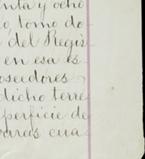 nta y ocho
o, tomo do-
del Regis-
en esa es-
oseedores
dicho terre
perficie de
varas cua-